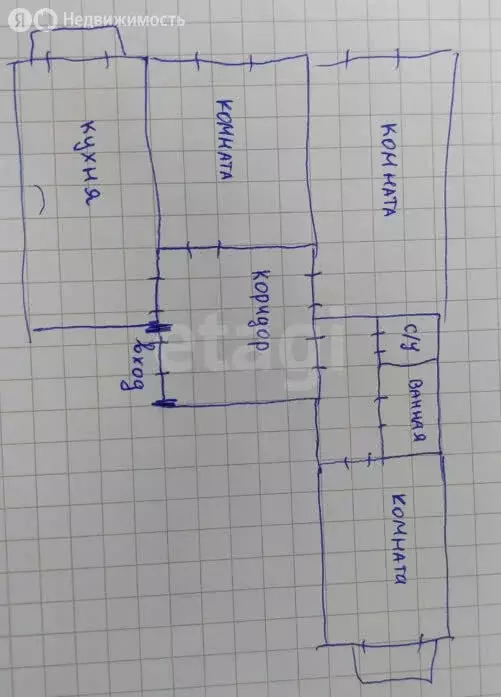 Я Недвижимость
кухня
комната
комната
коридор
с/у
вход
ванная
комната
etagi